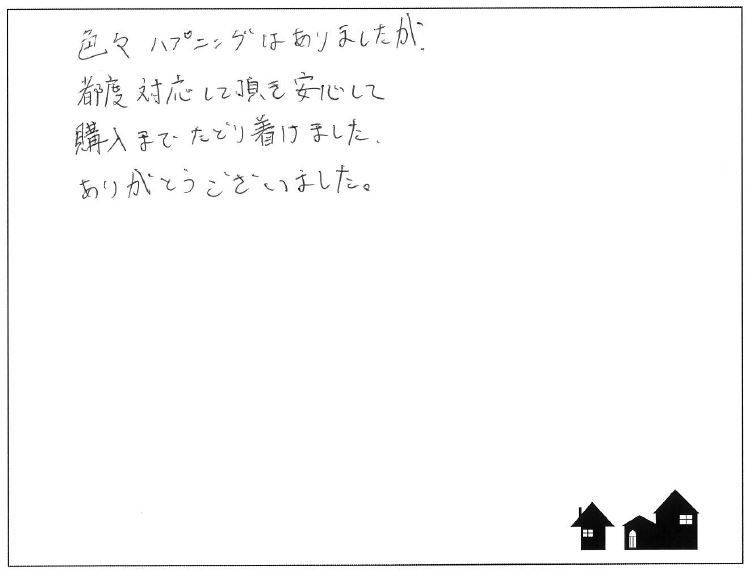 色々ハプニングはありましたが、
都度対応して頂き安心して
購入までたどり着けました。
ありがとうございました。